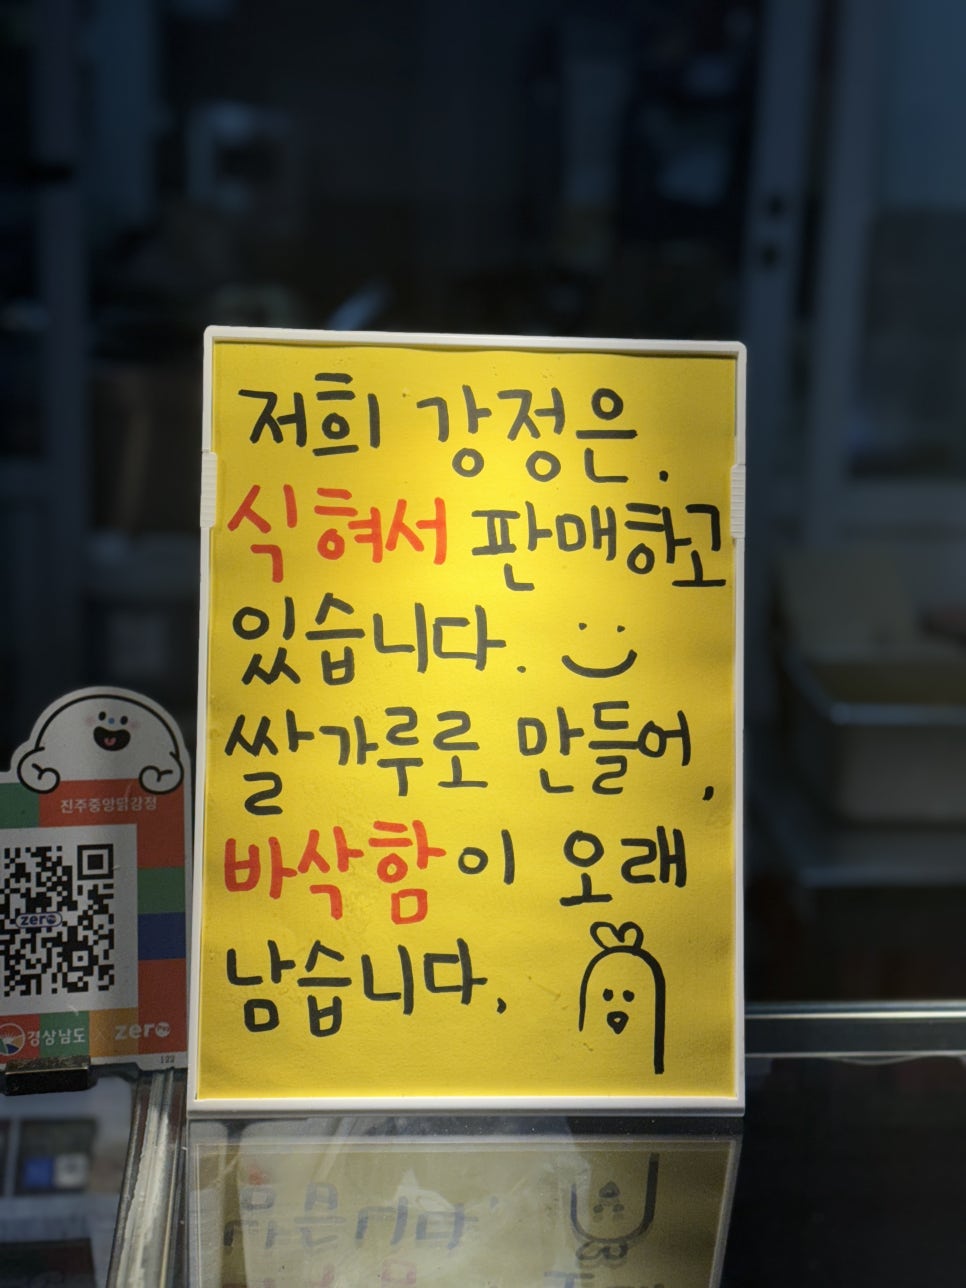 저희 강정은.
식혀서 판매하고
있습니다. :)
쌀가루로 만들어,
바삭함이 오래
남습니다,
진주중앙닭강정
zero
경상남도 x zero
122